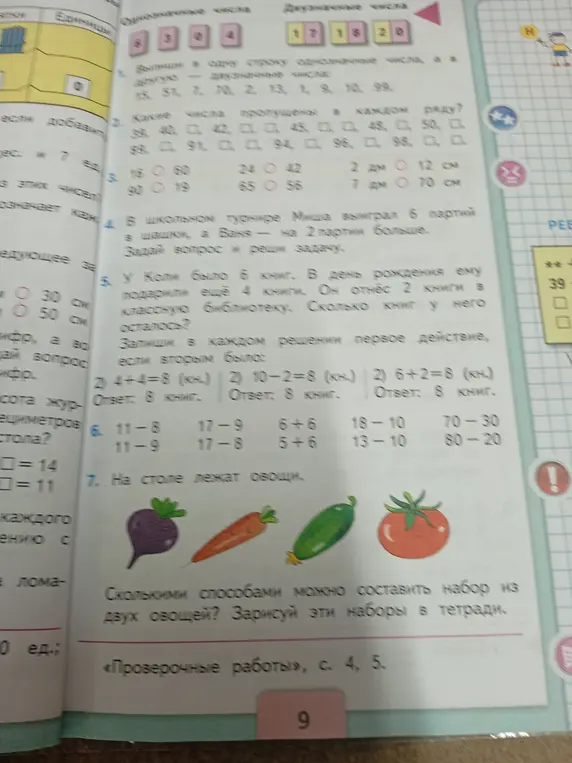 Единицы
0
если добавить
ес. и 7 ед.
з этих чисел
означает каж
едующее за
30 см
50 см
ифр, а во
ай вопрос
ифр.
сота жур-
ециметров
стола?
□ = 14
□ = 11
каждого
ению с
лома-
0 ед.;
Однозначные числа Двузначные числа
3 0 4 17 18 20
1. Выпиши в одну строку однозначные числа, а в
другую — двузначные числа:
15, 51, 7, 70, 2, 13, 1, 9, 10, 99.
2. Какие числа пропущены в каждом ряду?
39, 40, □, 42, □, □, 45, □, □, 48, □, 50, □.
89, □, 91, □, □, 94, □, 96, □, 98, □, □.
3. 16 ○ 60 24 ○ 42 2 дм ○ 12 см
90 ○ 19 65 ○ 56 7 дм ○ 70 см
4. В школьном турнире Миша выиграл 6 партий
в шашки, а Ваня — на 2 партии больше.
Задай вопрос и реши задачу.
5. У Коли было 6 книг. В день рождения ему
подарили ещё 4 книги. Он отнёс 2 книги в
классную библиотеку. Сколько книг у него
осталось?
Запиши в каждом решении первое действие,
если вторым было:
2) 4+4=8 (кн.) 2) 10−2=8 (кн.) 2) 6+2=8 (кн.)
Ответ: 8 книг. Ответ: 8 книг. Ответ: 8 книг.
6. 11 − 8 17 − 9 6 + 6 18 − 10 70 − 30
11 − 9 17 − 8 5 + 6 13 − 10 80 − 20
7. На столе лежат овощи.
Сколькими способами можно составить набор из
двух овощей? Зарисуй эти наборы в тетради.
«Проверочные работы», с. 4, 5.
9
РЕБ
39